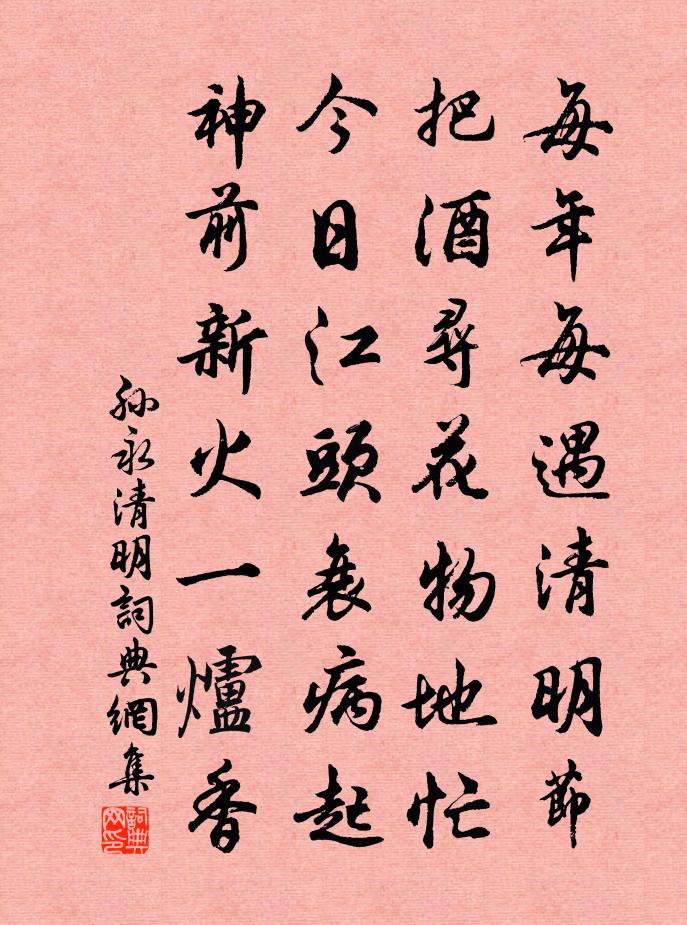 每年每遇清明節
把酒尋花物地忙
今日江頭衰病起
神前新火一爐香
孙永清明詞典網集
詞典网印